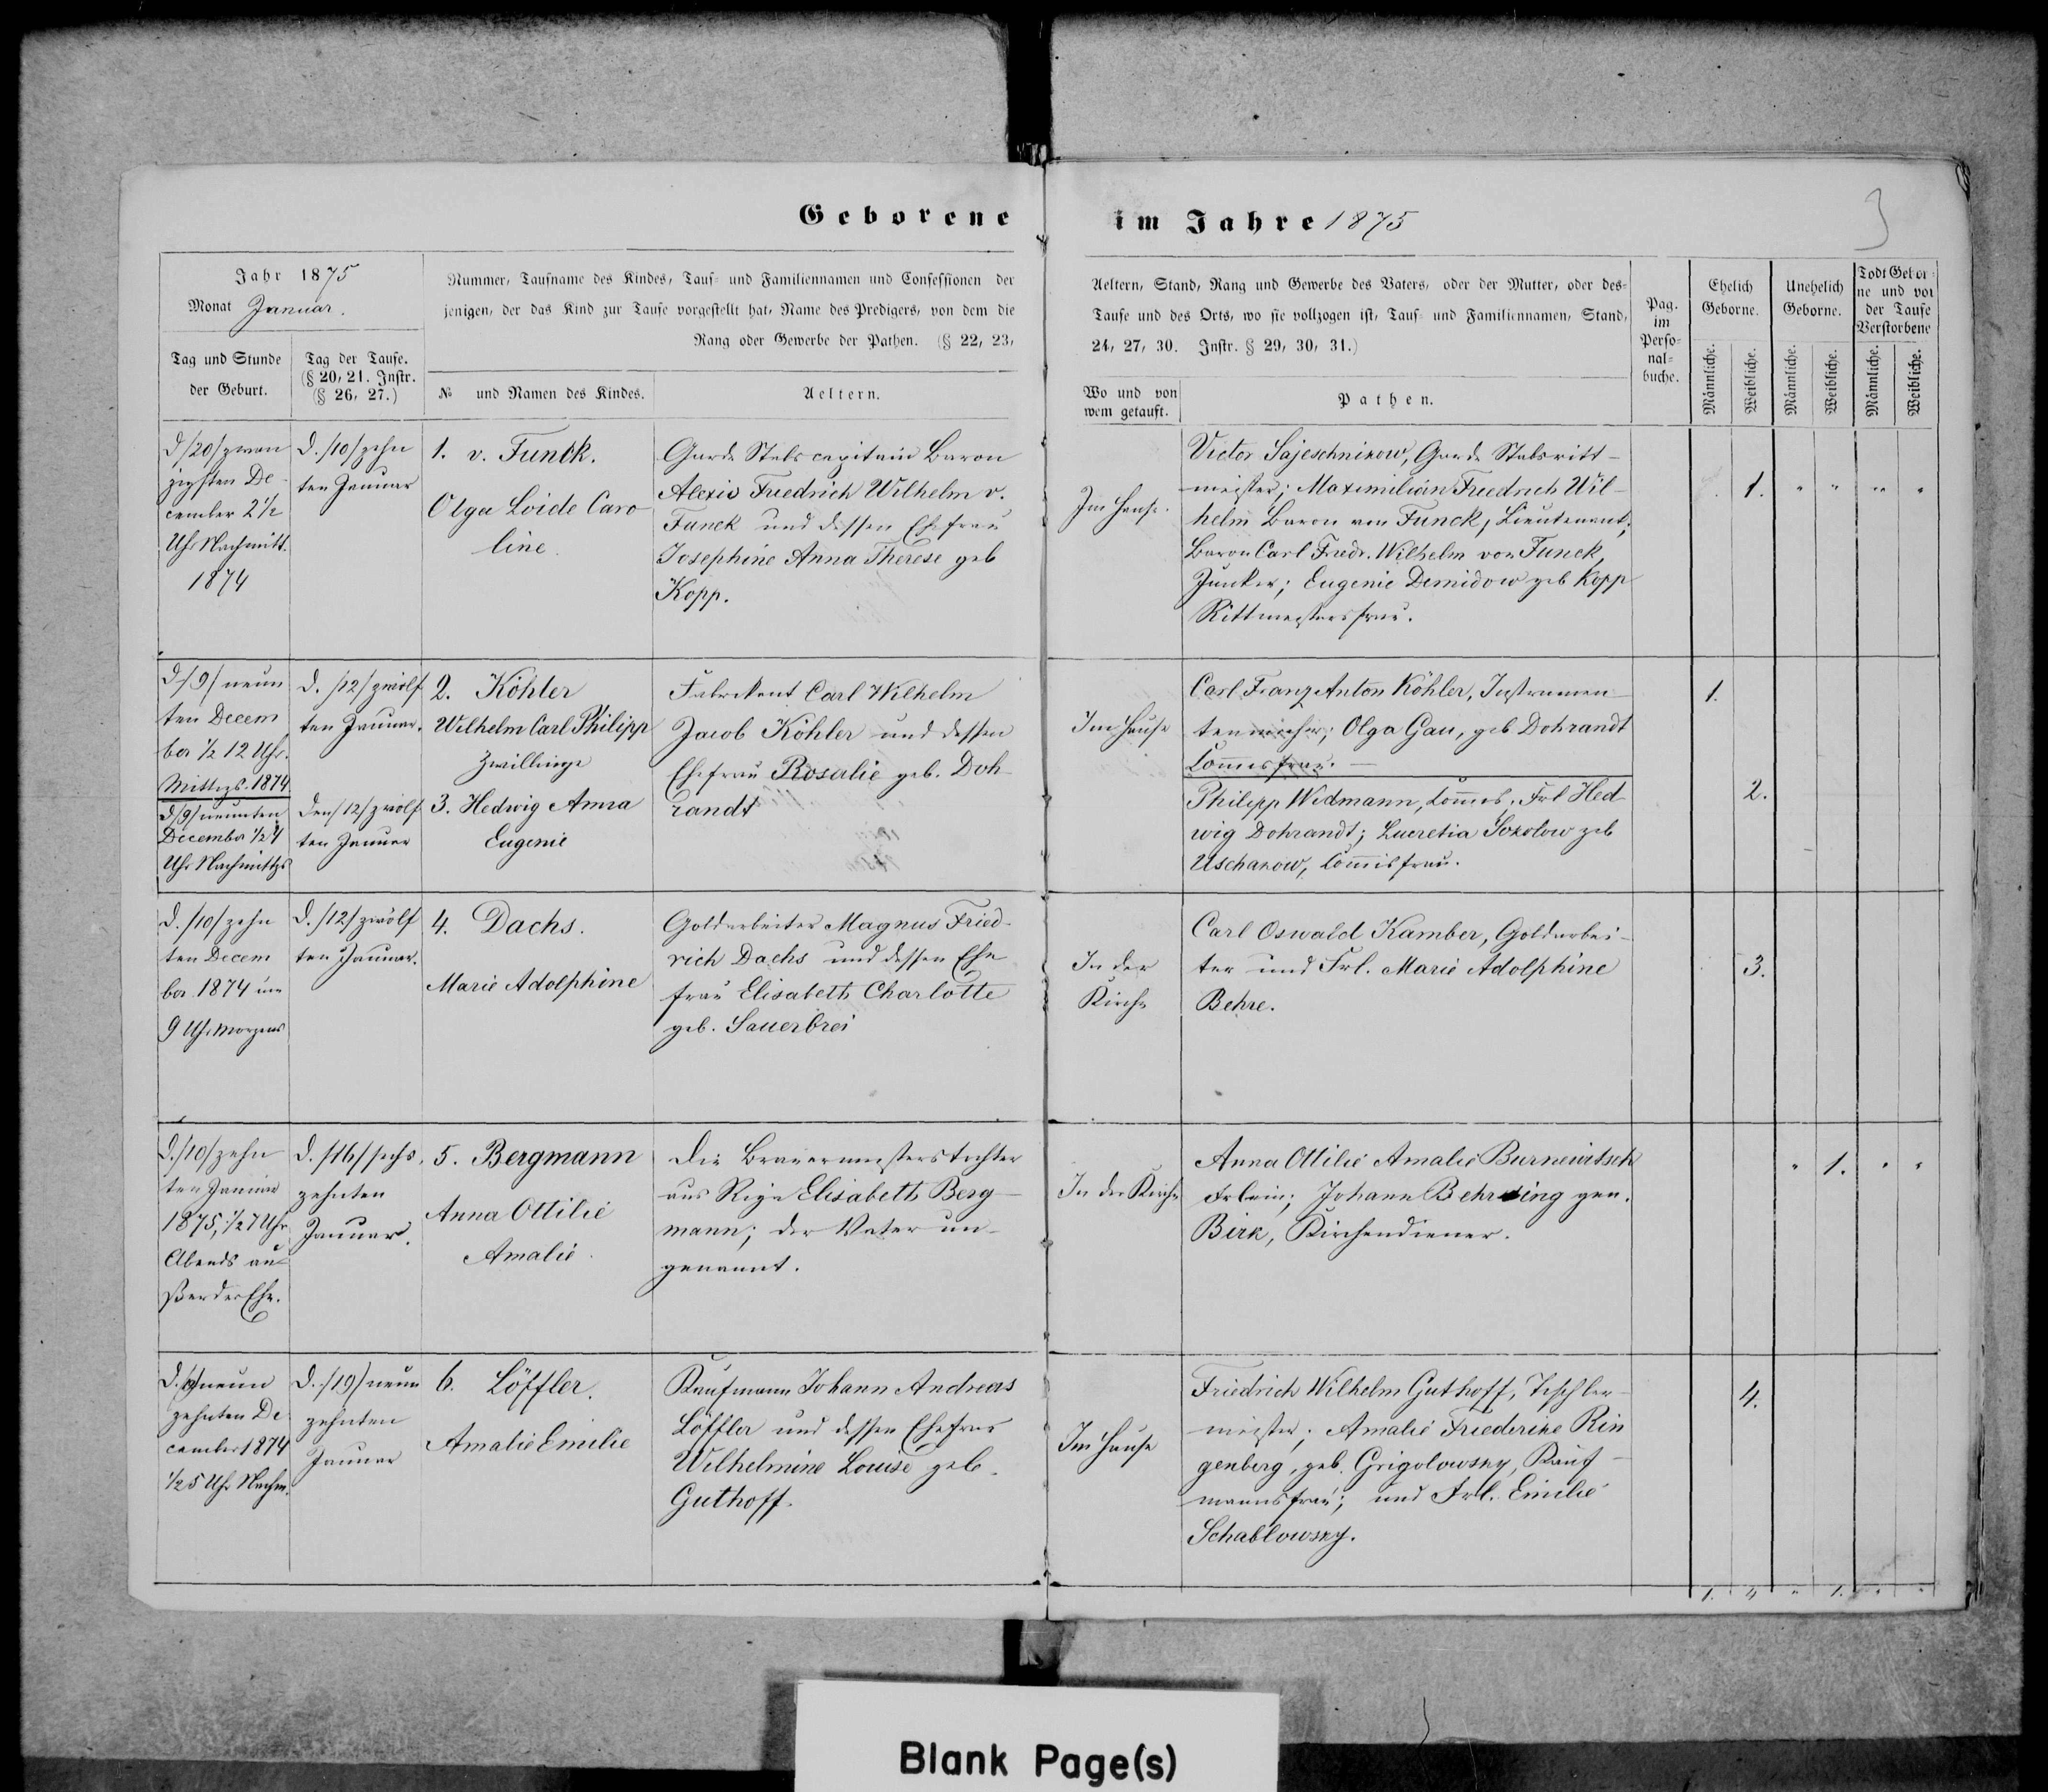 Geborene im Jahre 1875
3
Jahr 1875
Monat Januar.
Tag und Stunde
der Geburt.
Tag der Taufe.
(§ 20, 21. Instr.
(§ 26, 27.)
Nummer, Taufname des Kindes, Tauf- und Familiennamen und Confessionen der
jenigen, der das Kind zur Taufe vorgestellt hat, Name des Predigers, von dem die
Rang oder Gewerbe der Pathen. (§ 22, 23,
№ und Namen des Kindes.
Aeltern.
Aeltern, Stand, Rang und Gewerbe des Vaters, oder der Mutter, oder des-
Taufe und des Orts, wo sie vollzogen ist, Tauf- und Familiennamen, Stand,
24, 27, 30. Instr. § 29, 30, 31.)
Wo und von
wem getauft.
Pathen.
Pag.
im
Perso-
nal-
buche.
Ehelich
Geborne.
Unehelich
Geborne.
Todt Gebor-
ne und vor
der Taufe
Verstorbene
Männliche.
Weibliche.
Männliche.
Weibliche.
Männliche.
Weibliche.
d/20/zwan
zigsten De-
cember 2½
Uhr Nachmitt.
1874
D./10/zehn
ten Januar
1. v. Funck.
Olga Loide Caro
line.
Garde Stabscapitain Baron
Alexis Friedrich Wilhelm v.
Funck und dessen Ehefrau
Josephine Anna Therese geb
Kopp.
Im Hause.
Victor Sajeschnikow, Garde Stabsritt-
meister; Maximilian Friedrich Wil-
helm Baron von Funck, Lieutenant;
Baron Carl Friedr. Wilhelm von Funck,
Junker; Eugenie Demidow geb Kopp
Rittmeistersfrau.
1. " " " "
d/9/neun
ten Decem
ber ½ 12 Uhr.
Mittags. 1874
D./12/zwölf
ten Januar.
2. Köhler
Wilhelm Carl Philipp
Zwillinge
Fabrikant Carl Wilhelm
Jacob Köhler und dessen
Ehefrau Rosalie geb. Doh-
randt
Im Hause
Carl Franz Anton Köhler, Instrumen-
tenmacher; Olga Gau, geb Dohrandt
Commisfrau.
1.
d/9/neunten
December ½ 4
Uhr Nachmittgs
den/12/zwölf
ten Januar
3. Hedwig Anna
Eugenie
Philipp Widmann, Commis. Frl Hed
wig Dohrandt; Lucretia Sokolow geb
Uschakow, Commisfrau.
2.
d./10/zehn
ten Decem
ber. 1874 um
9 Uhr Morgens
D./12/zwölf
ten Januar.
4. Dachs.
Marie Adolphine
Goldarbeiter Magnus Fried-
rich Dachs und dessen Ehe
frau Elisabeth Charlotte
geb. Sauerbrei
In der
Kirche
Carl Oswald Kamber, Goldarbei-
ter und Frl. Marie Adolphine
Behre.
3.
d./10/zehn
ten Januar
1875, ½ 7 Uhr
Abends au
ßer der Ehe.
D./16/sechs
zehnten
Januar.
5. Bergmann
Anna Ottilie
Amalie.
Die Brauermeisterstochter
aus Riga Elisabeth Berg-
mann; der Vater un-
genannt.
In der Kirche
Anna Ottilie Amalie Burnewitsch
Frlein; Johann Behrsing gen.
Birk, Kirchendiener.
" 1. " "
d. 19/neun
zehnten De
cember 1874
½ 5 Uhr Nachm.
D./19/neun
zehnten
Januar
6. Löffler.
Amalie Emilie
Kaufmann Johann Andreas
Löffler und dessen Ehefrau
Wilhelmine Louise geb.
Guthoff.
Im Hause
Friedrich Wilhelm Guthoff, Tischler-
meister; Amalie Friederike Rin
genberg, geb. Grigolowsky, Kauf-
mannsfrau; und Frl. Emilie
Schablowsky.
4.
1. 4 " 1. " "
Blank Page(s)